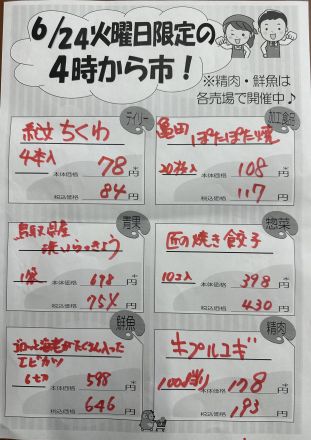 6/24火曜日限定の
4時から市!
※精肉・鮮魚は
各売場で開催中♪
デイリー
紀文ちくわ
4本入
本体価格 78円
税込価格 84円
加工食品
亀田 ぽたぽた焼
20枚入
本体価格 108円
税込価格 117円
青果
鳥取県産
洗いらっきょう
1袋
本体価格 698円
税込価格 754円
惣菜
匠の焼き餃子
10コ入
本体価格 398円
税込価格 430円
鮮魚
ゴロっと海老がたくさん入った
エビカツ
6切
本体価格 598円
税込価格 646円
精肉
牛プルコギ
100g当り
本体価格 178円
税込価格 193円